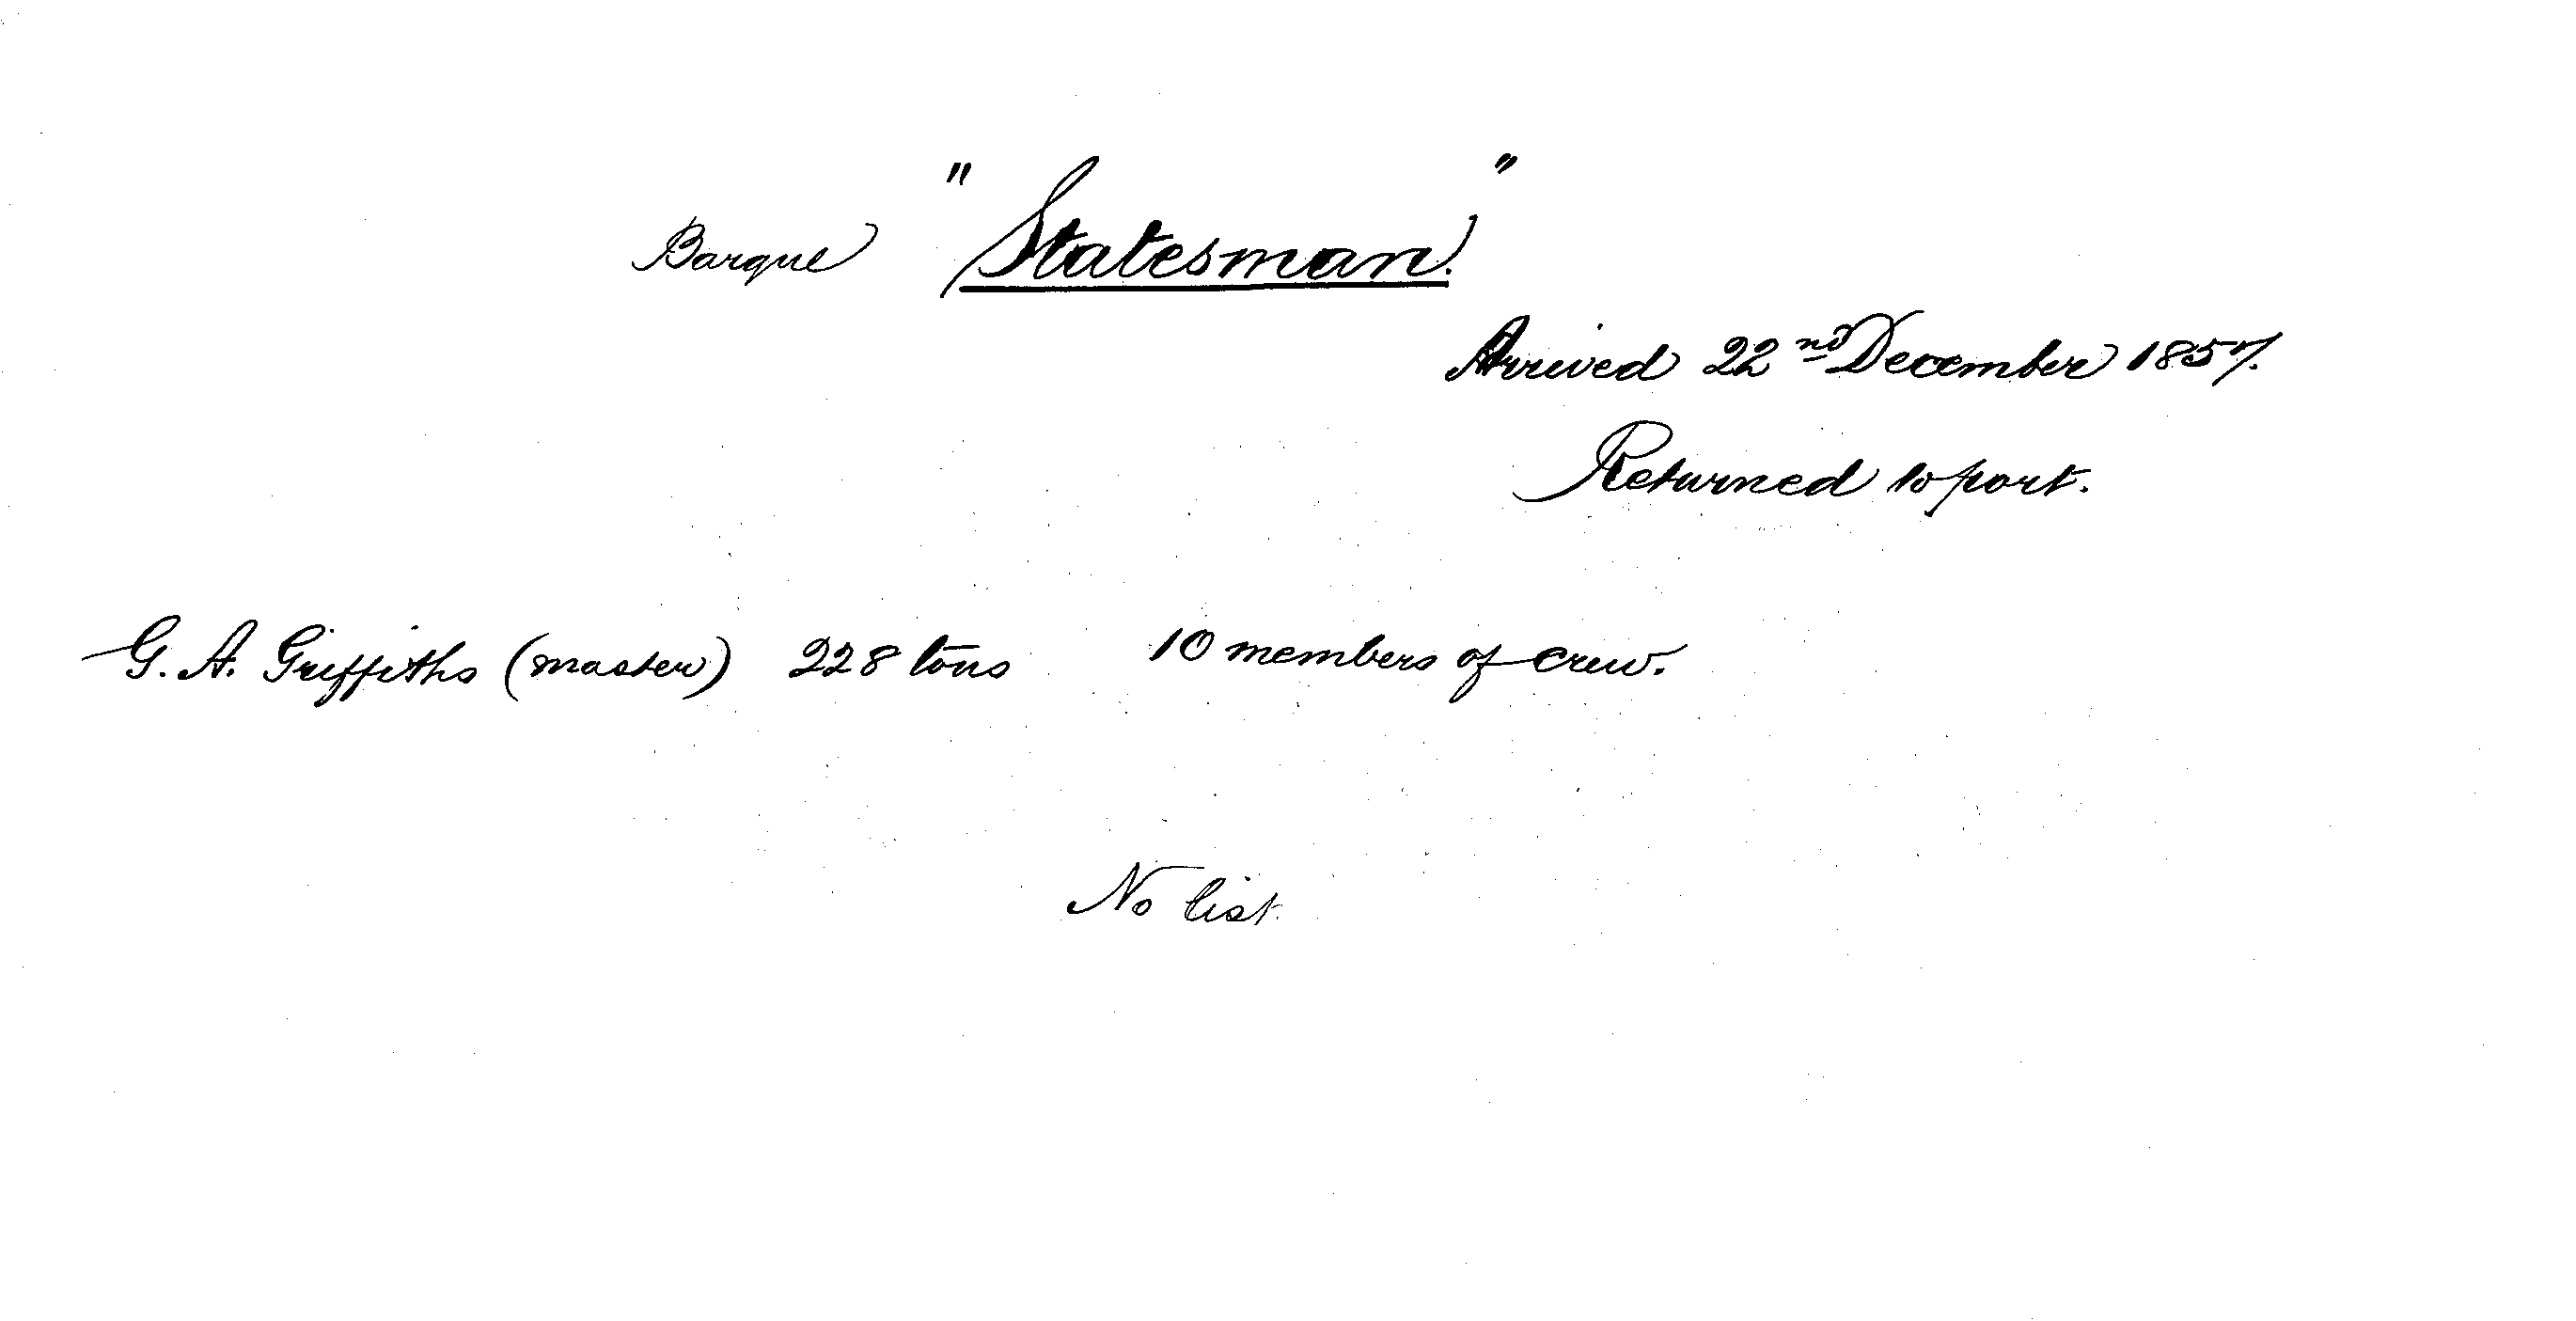 Barque "Statesman."
Arrived 22nd December 1857.
Returned to port.
G. A. Griffiths (master) 228 tons 10 members of crew.
No list.